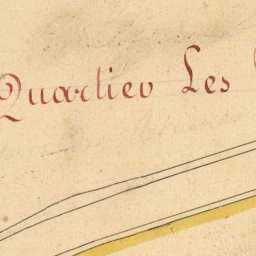 Quartier Les